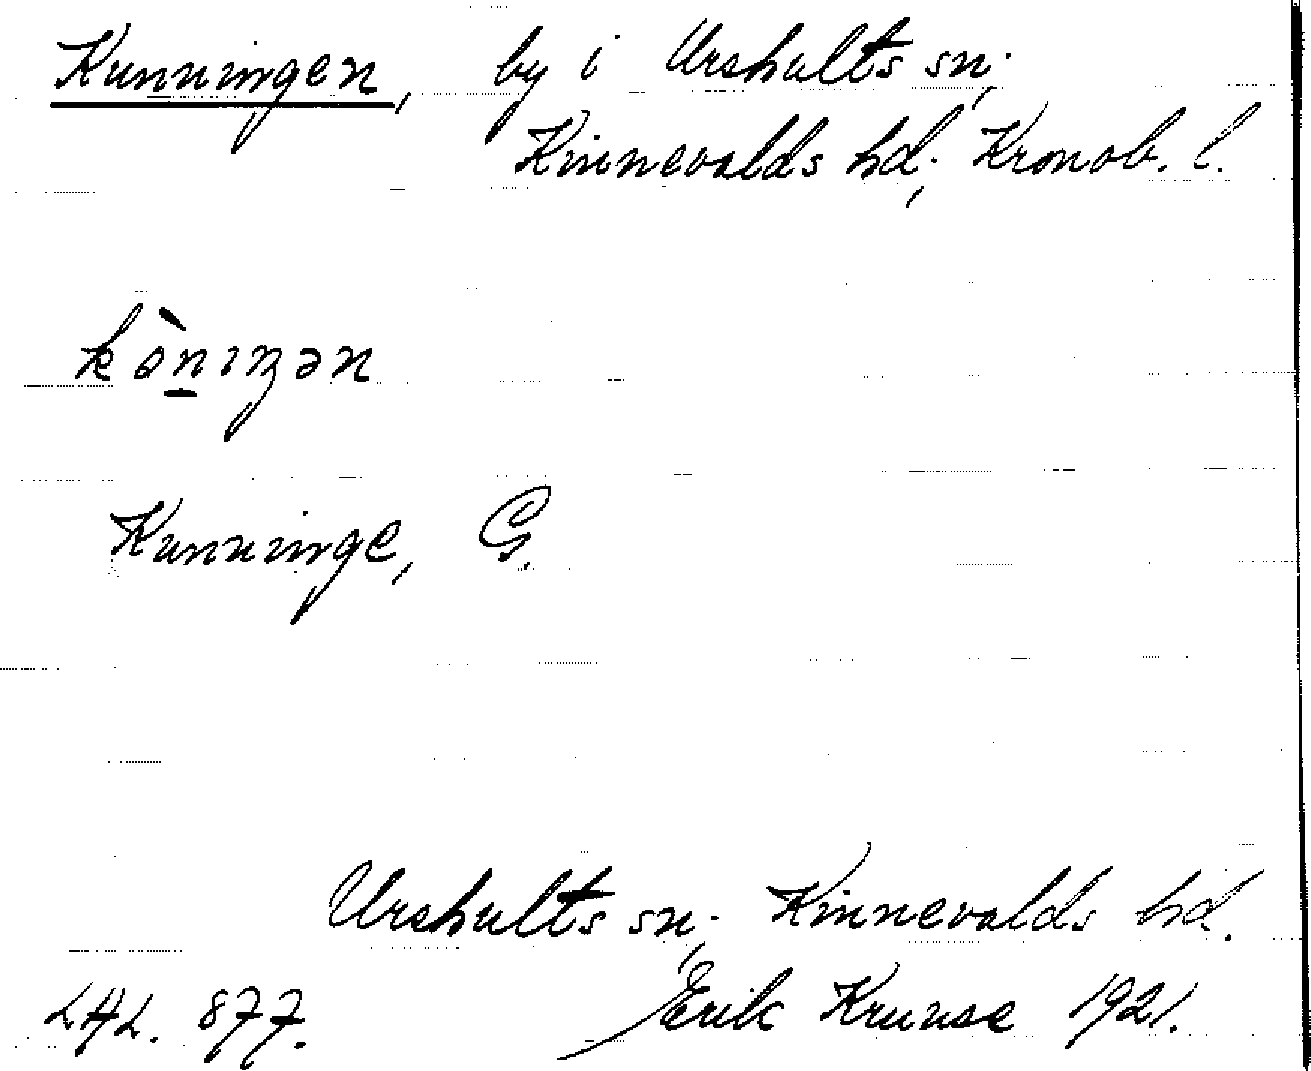 Kunningen, by i Urshults sn;
Kinnevalds hd; Kronob. l.
kòn̠ıŋən
Kunninge, G.
Urshults sn; Kinnevalds hd.
LAL. 877. Erik Kruuse 1921.